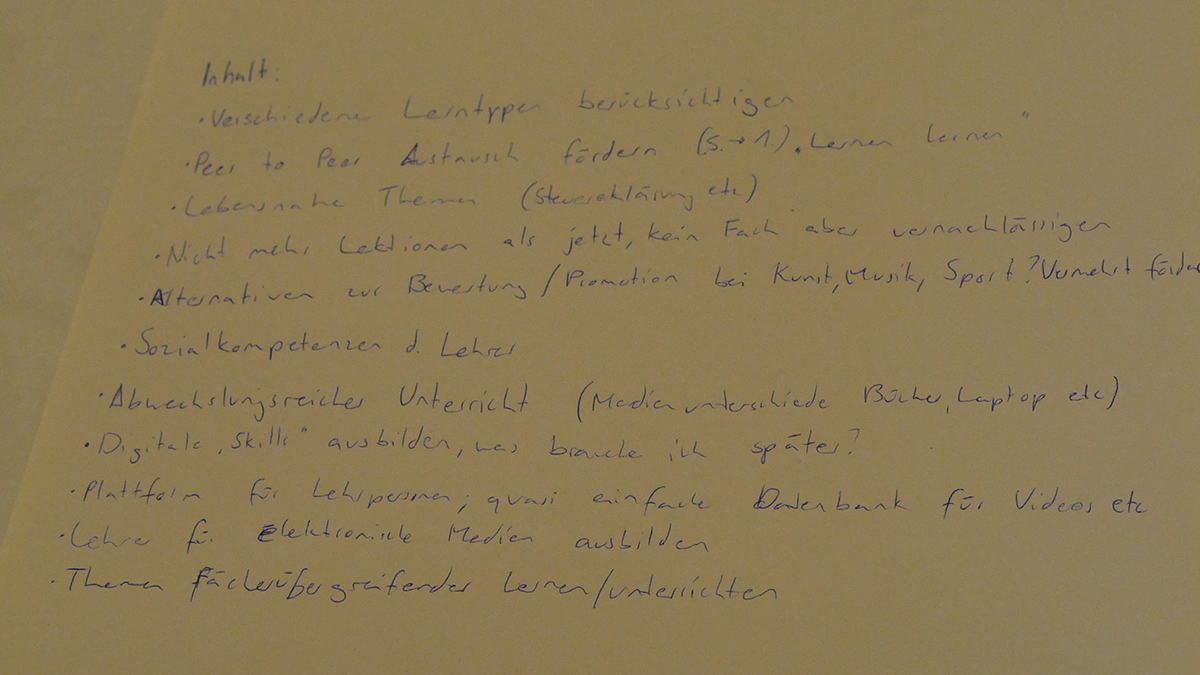 Inhalt:
· Verschiedene Lerntypen berücksichtigen
· Peer to Peer Austausch fördern (5.→1.) „Lernen lernen"
· Lebensnahe Themen (Steuererklärung etc)
· Nicht mehr Lektionen als jetzt, kein Fach aber vernachlässigen
· Alternativen zur Bewertung/Promotion bei Kunst, Musik, Sport? Vermehrt förder
· Sozialkompetenzen d. Lehrer
· Abwechslungsreicher Unterricht (Medienunterschiede Bücher, Laptop etc)
· Digitale „Skills" ausbilden, was brauche ich später?
· Plattform für Lehrpersonen; quasi einfache Datenbank für Videos etc
· Lehrer für elektronische Medien ausbilden
· Themen Fächerübergreifender lernen/unterrichten